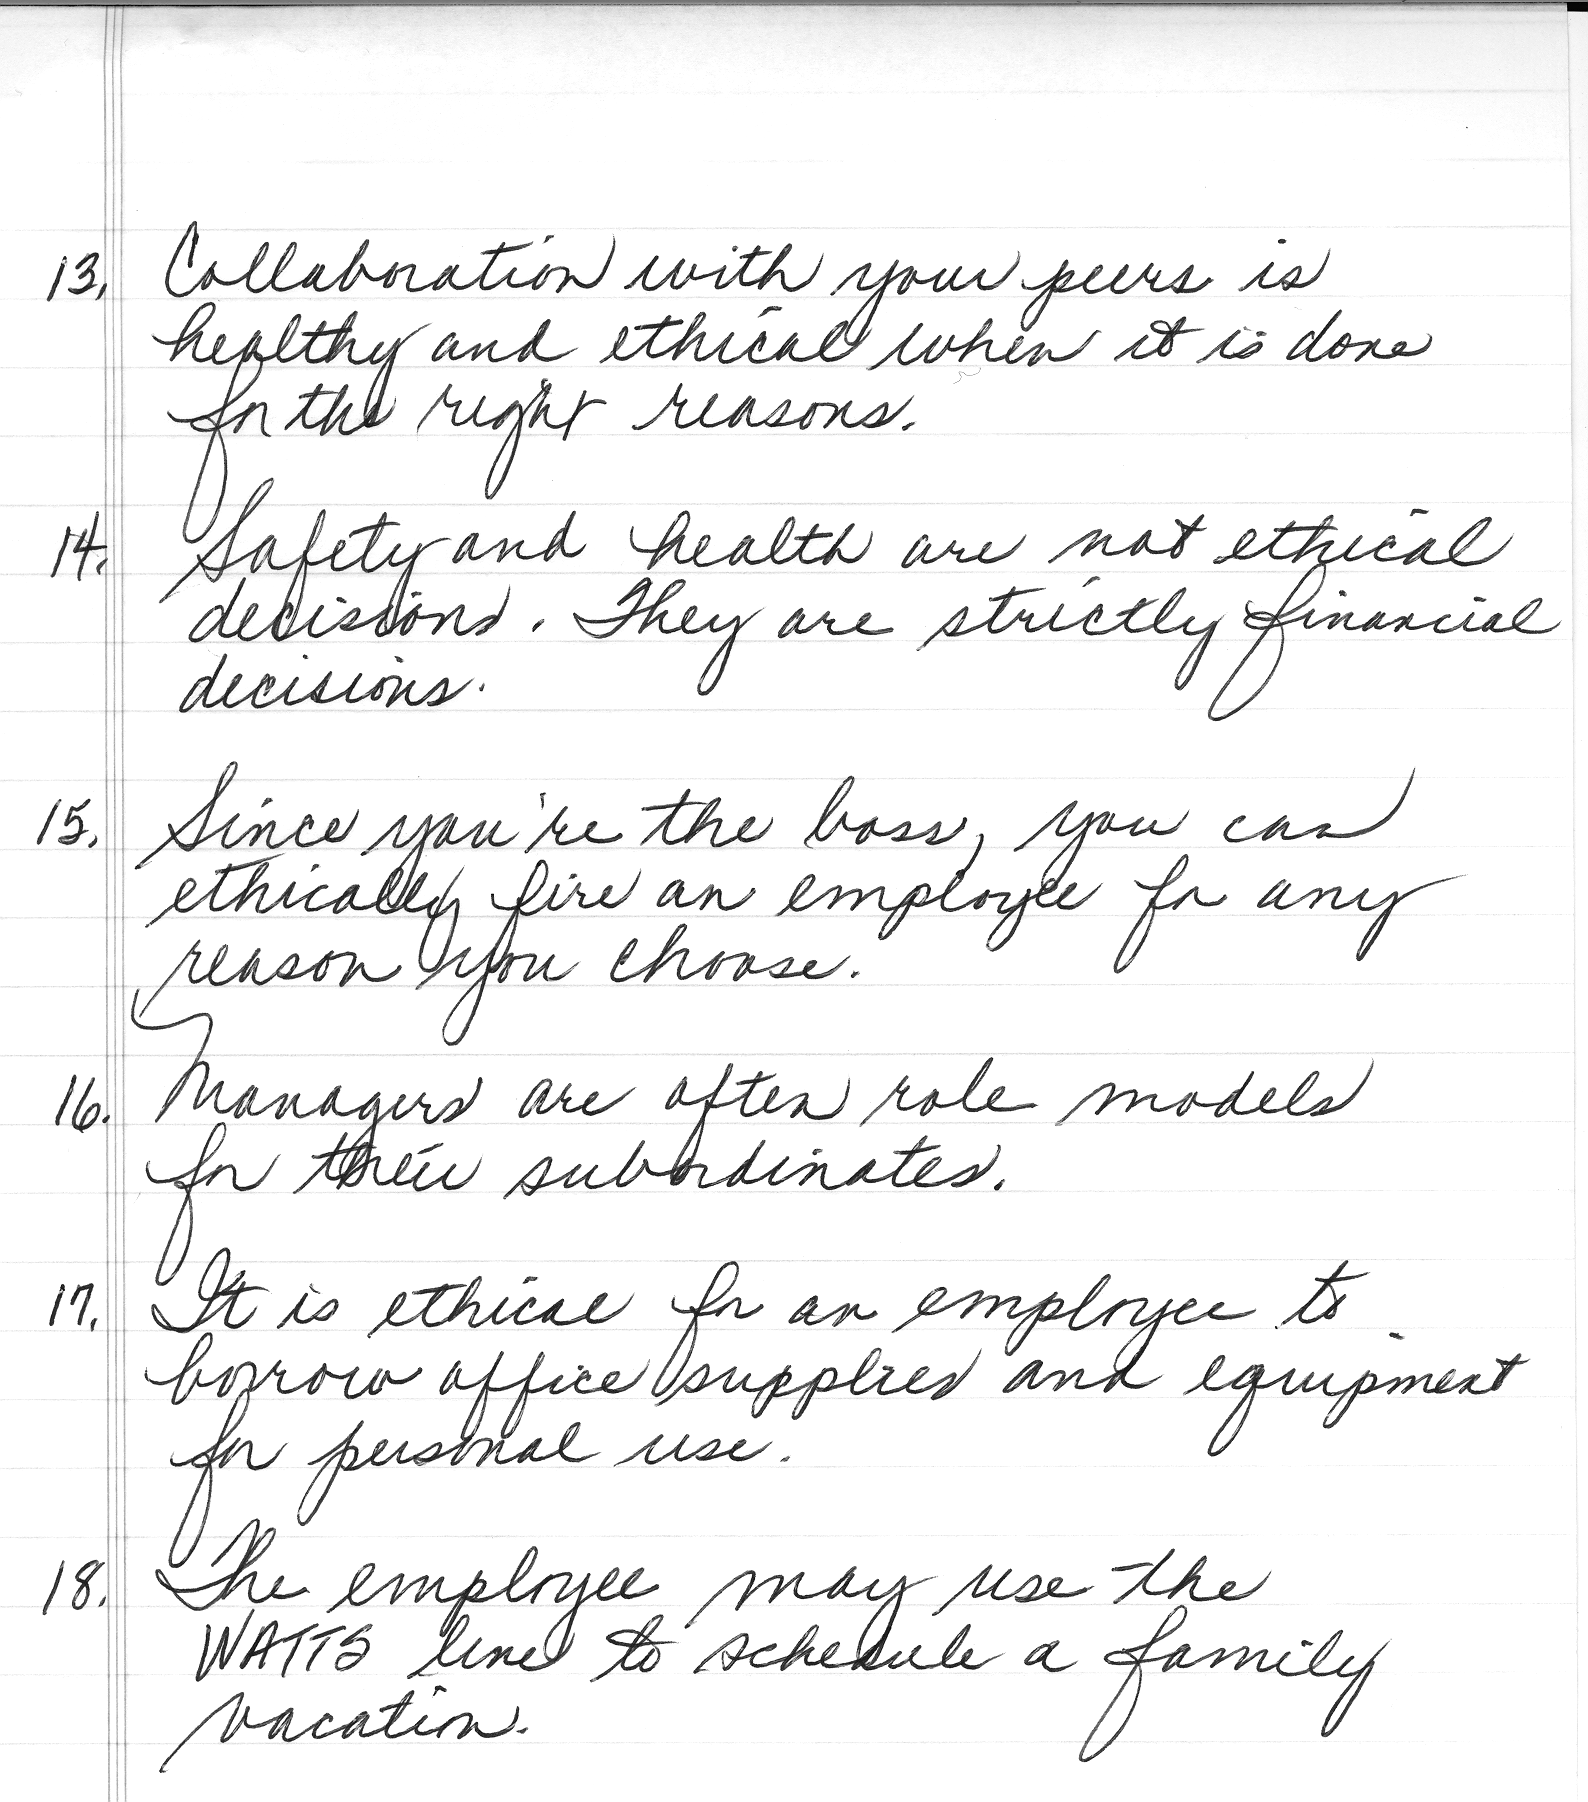 13. Collaboration with your peers is
healthy and ethical when it is done
for the right reasons.
14. Safety and health are not ethical
decisions. They are strictly financial
decisions.
15. Since you're the boss, you can
ethically fire an employee for any
reason you choose.
16. Managers are often role models
for their subordinates.
17. It is ethical for an employee to
borrow office supplies and equipment
for personal use.
18. The employee may use the
WATTS line to schedule a family
vacation.